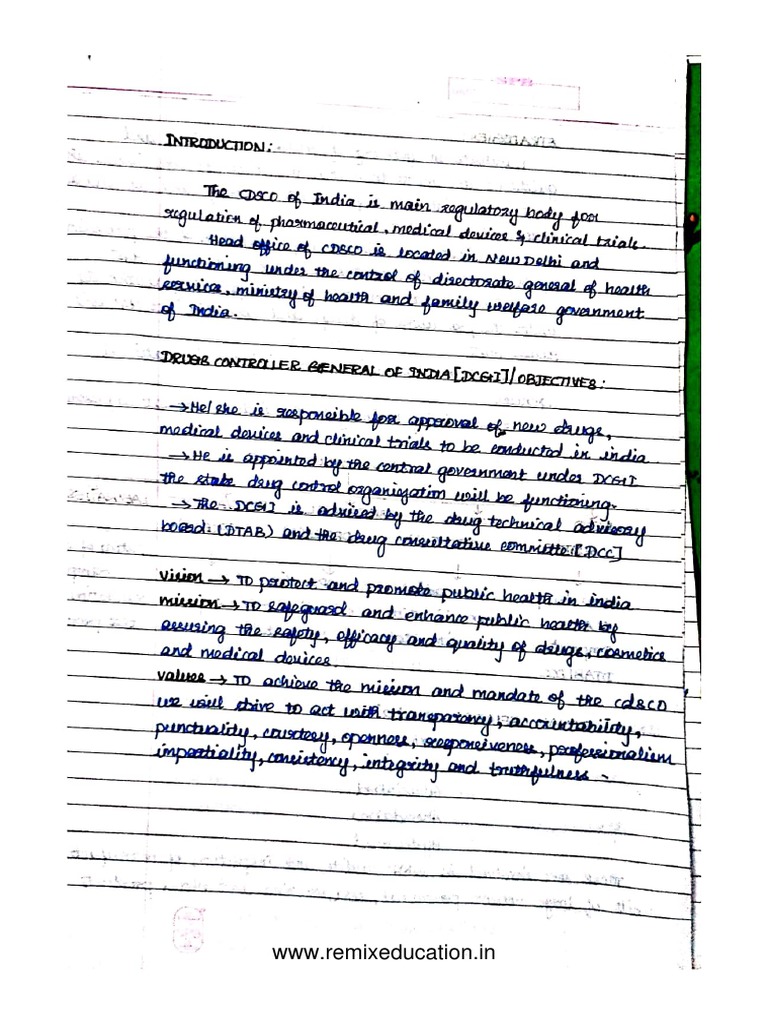 INTRODUCTION:
The CDSCO of India is main regulatory body for
regulation of pharmaceutical, medical devices & clinical trials.
Head office of CDSCO is located in New Delhi and
functioning under the control of directorate general of health
service, ministry of health and family welfare government
of India.
DRUGS CONTROLLER GENERAL OF INDIA [DCGI]/OBJECTIVES:
→ He/she is responsible for approval of new drugs,
medical devices and clinical trials to be conducted in india
→ He is appointed by the central government under DCGI
the state drug control organization will be functioning.
→ The DCGI is advised by the drug technical advisory
board (DTAB) and the drug consultative committe [DCC]
vision → To protect and promote public health in india
mission → To safeguard and enhance public health by
assuring the safety, efficacy and quality of drugs, cosmetics
and medical devices.
values → To achieve the mission and mandate of the CDSCO
we will strive to act with transparency, accountability,
punctuality, courtesy, openness, responsiveness, professionalism
impartiality, consistency, integrity and truthfulness.
www.remixeducation.in